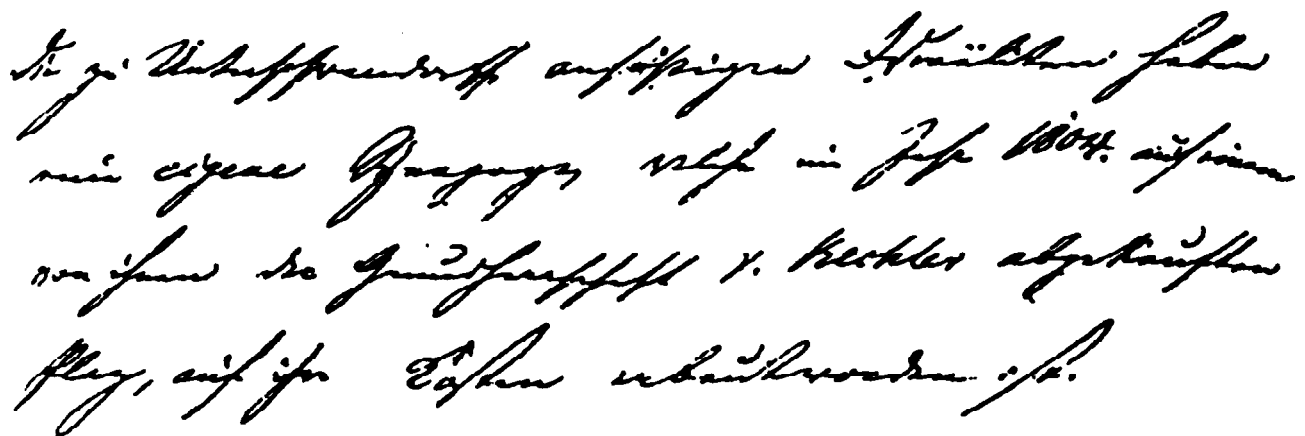 Die zu Unterschwandorf ansäßigen Israëliten haben
eine eigene Synagoge, welche im Jahr 1804. auf einem
von ihnen der Grundherrschaft v. Kechler abgekauften
Platz, auf ihre Kosten erbaut worden ist.